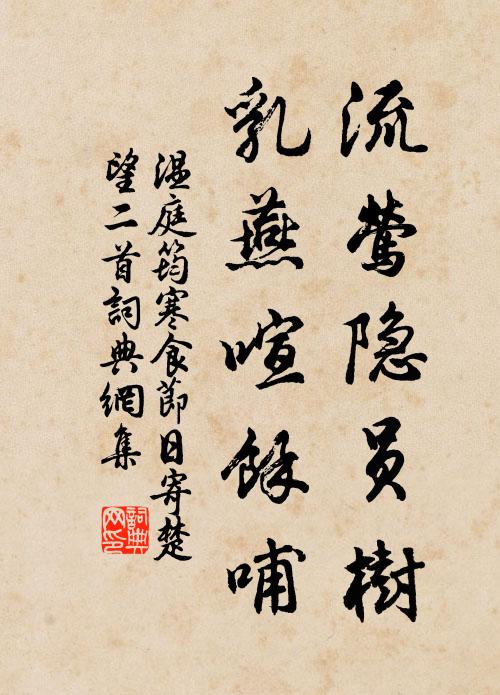 流莺隐员樹
乳燕喧餘哺
温庭筠寒食節日寄楚
望二首詞典網集
詞典
网印